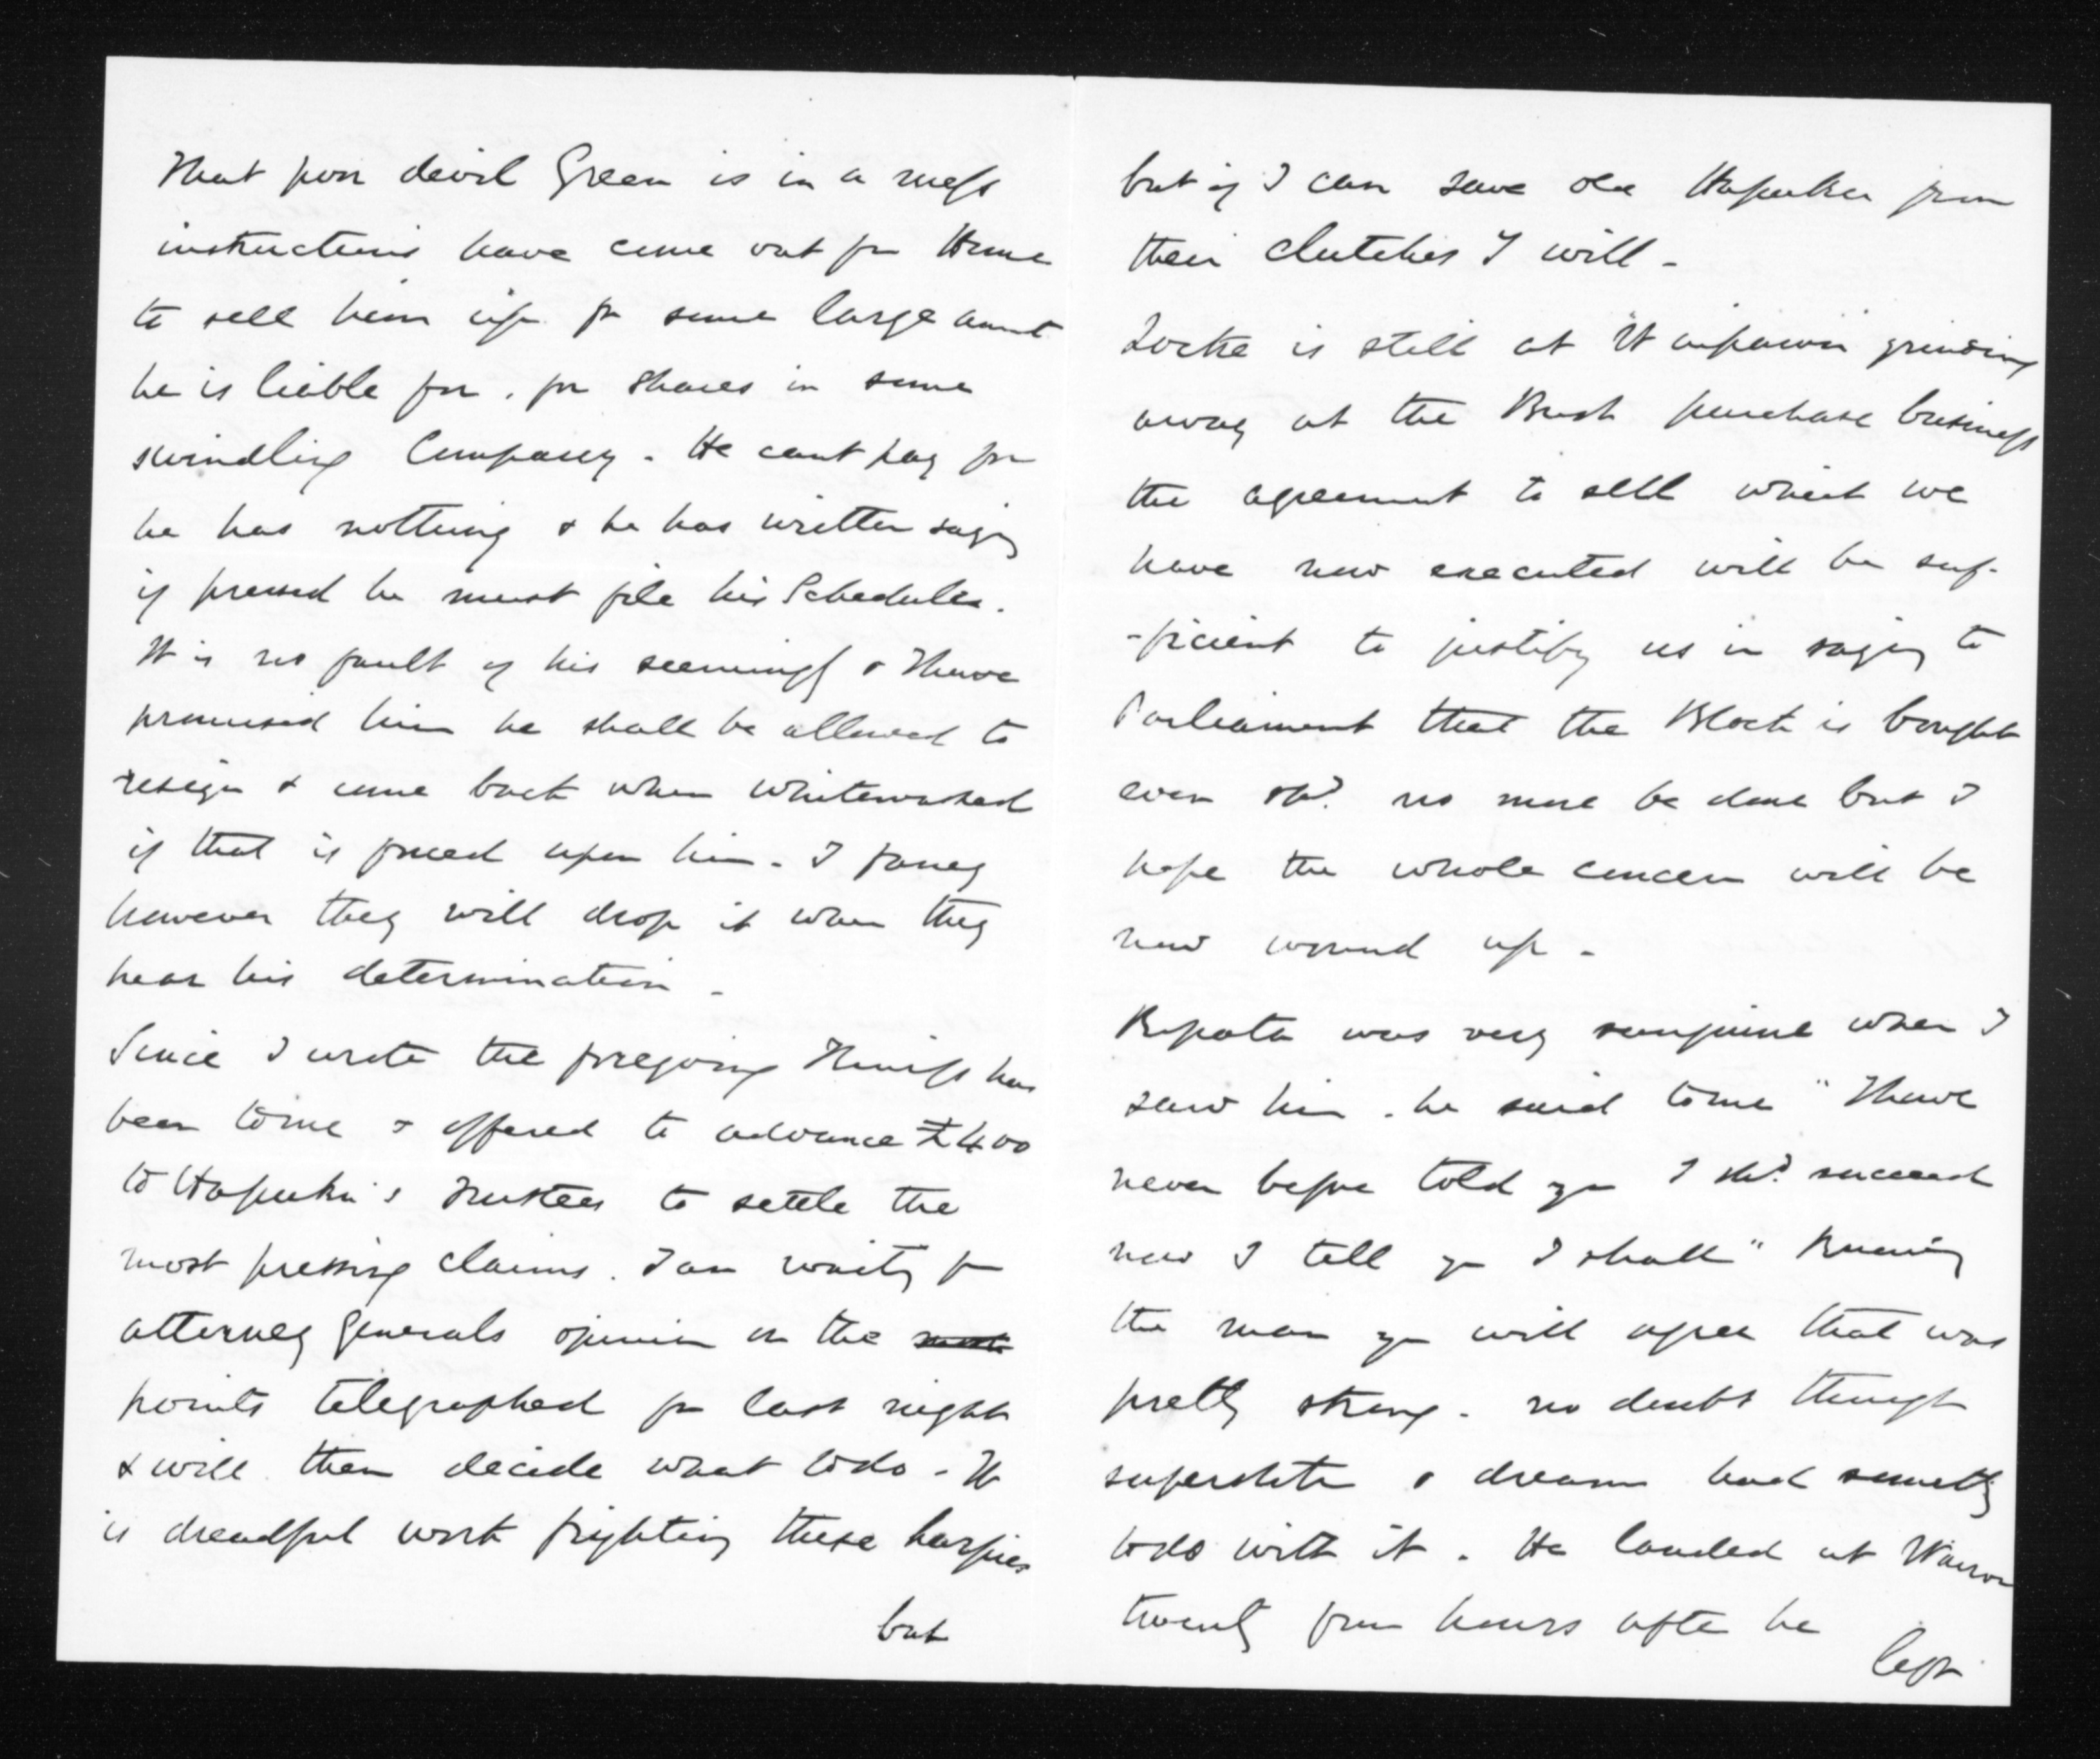 That poor devil Green is in a mess
instructions have come out fm Home
to sell him up for some large amt
he is liable for, for shares in some
swindling Company. He cant pay for
he has nothing & he has written saying
if pressed he must file his Schedules.
It is no fault of his seemingly & I have
promised him he shall be allowed to
resign & come back when whitewashed
if that is forced upon him. I fancy
however they will drop it when they
hear his determination -
Since I wrote the foregoing has
been to me & offered to advance £400
to Hapuku's Trustees to settle the
most pressing claims. I am waiting for
attorney Generals opinion on the
points telegraphed for last night
& will then decide what to do - It
is dreadful work fighting these harpies
but
but if I can save old Hapuku from
their clutches I will -
Locke is still at Waipawa grinding
away at the Bush purchase business
the agreement to sell which we
have now executed will be suf-
-ficient to justify us in saying to
Parliament that the Block is bought
even shd. no more be done but I
hope the whole concern will be
now wound up -
Ropata was very sanguine when I
saw him. he said to me "I have
never before told you I shd. succeed
now I tell you I shall" Knowing
the man you will agree that was
pretty strong. no doubt though
superstitn & dreams had something
to do with it. He landed at Wairoa
twenty four hours after he
left